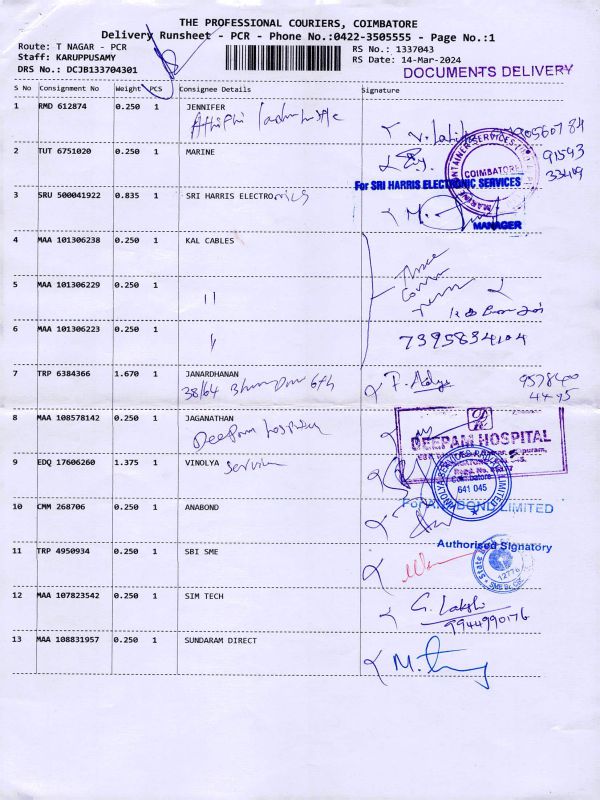 THE PROFESSIONAL COURIERS, COIMBATORE
Delivery Runsheet - PCR - Phone No.:0422-3505555 - Page No.:1
Route: T NAGAR - PCR
Staff: KARUPPUSAMY
DRS No.: DCJB133704301
RS No.: 1337043
RS Date: 14-Mar-2024
DOCUMENTS DELIVERY
S No Consignment No Weight PCS Consignee Details Signature
1 RMD 612874 0.250 1 JENNIFER
2 TUT 6751020 0.250 1 MARINE
91543
COIMBATORE
For SRI HARRIS ELECTRONIC SERVICES
3 SRU 500041922 0.835 1 SRI HARRIS ELECTRONICS
MANAGER
4 MAA 101306238 0.250 1 KAL CABLES
5 MAA 101306229 0.250 1 "
6 MAA 101306223 0.250 1 "
7395834104
7 TRP 6384366 1.670 1 JANARDHANAN
38/64 6th
9578400
4495
8 MAA 108578142 0.250 1 JAGANATHAN
Deepam hospital
DEEPAM HOSPITAL
9 EDQ 17606260 1.375 1 VINOLYA Service
641 045
10 CMM 268706 0.250 1 ANABOND
For ANABOND LIMITED
Authorised Signatory
11 TRP 4950934 0.250 1 SBI SME
12 MAA 107823542 0.250 1 SIM TECH
G. Lakshi
9944990176
13 MAA 108831957 0.250 1 SUNDARAM DIRECT